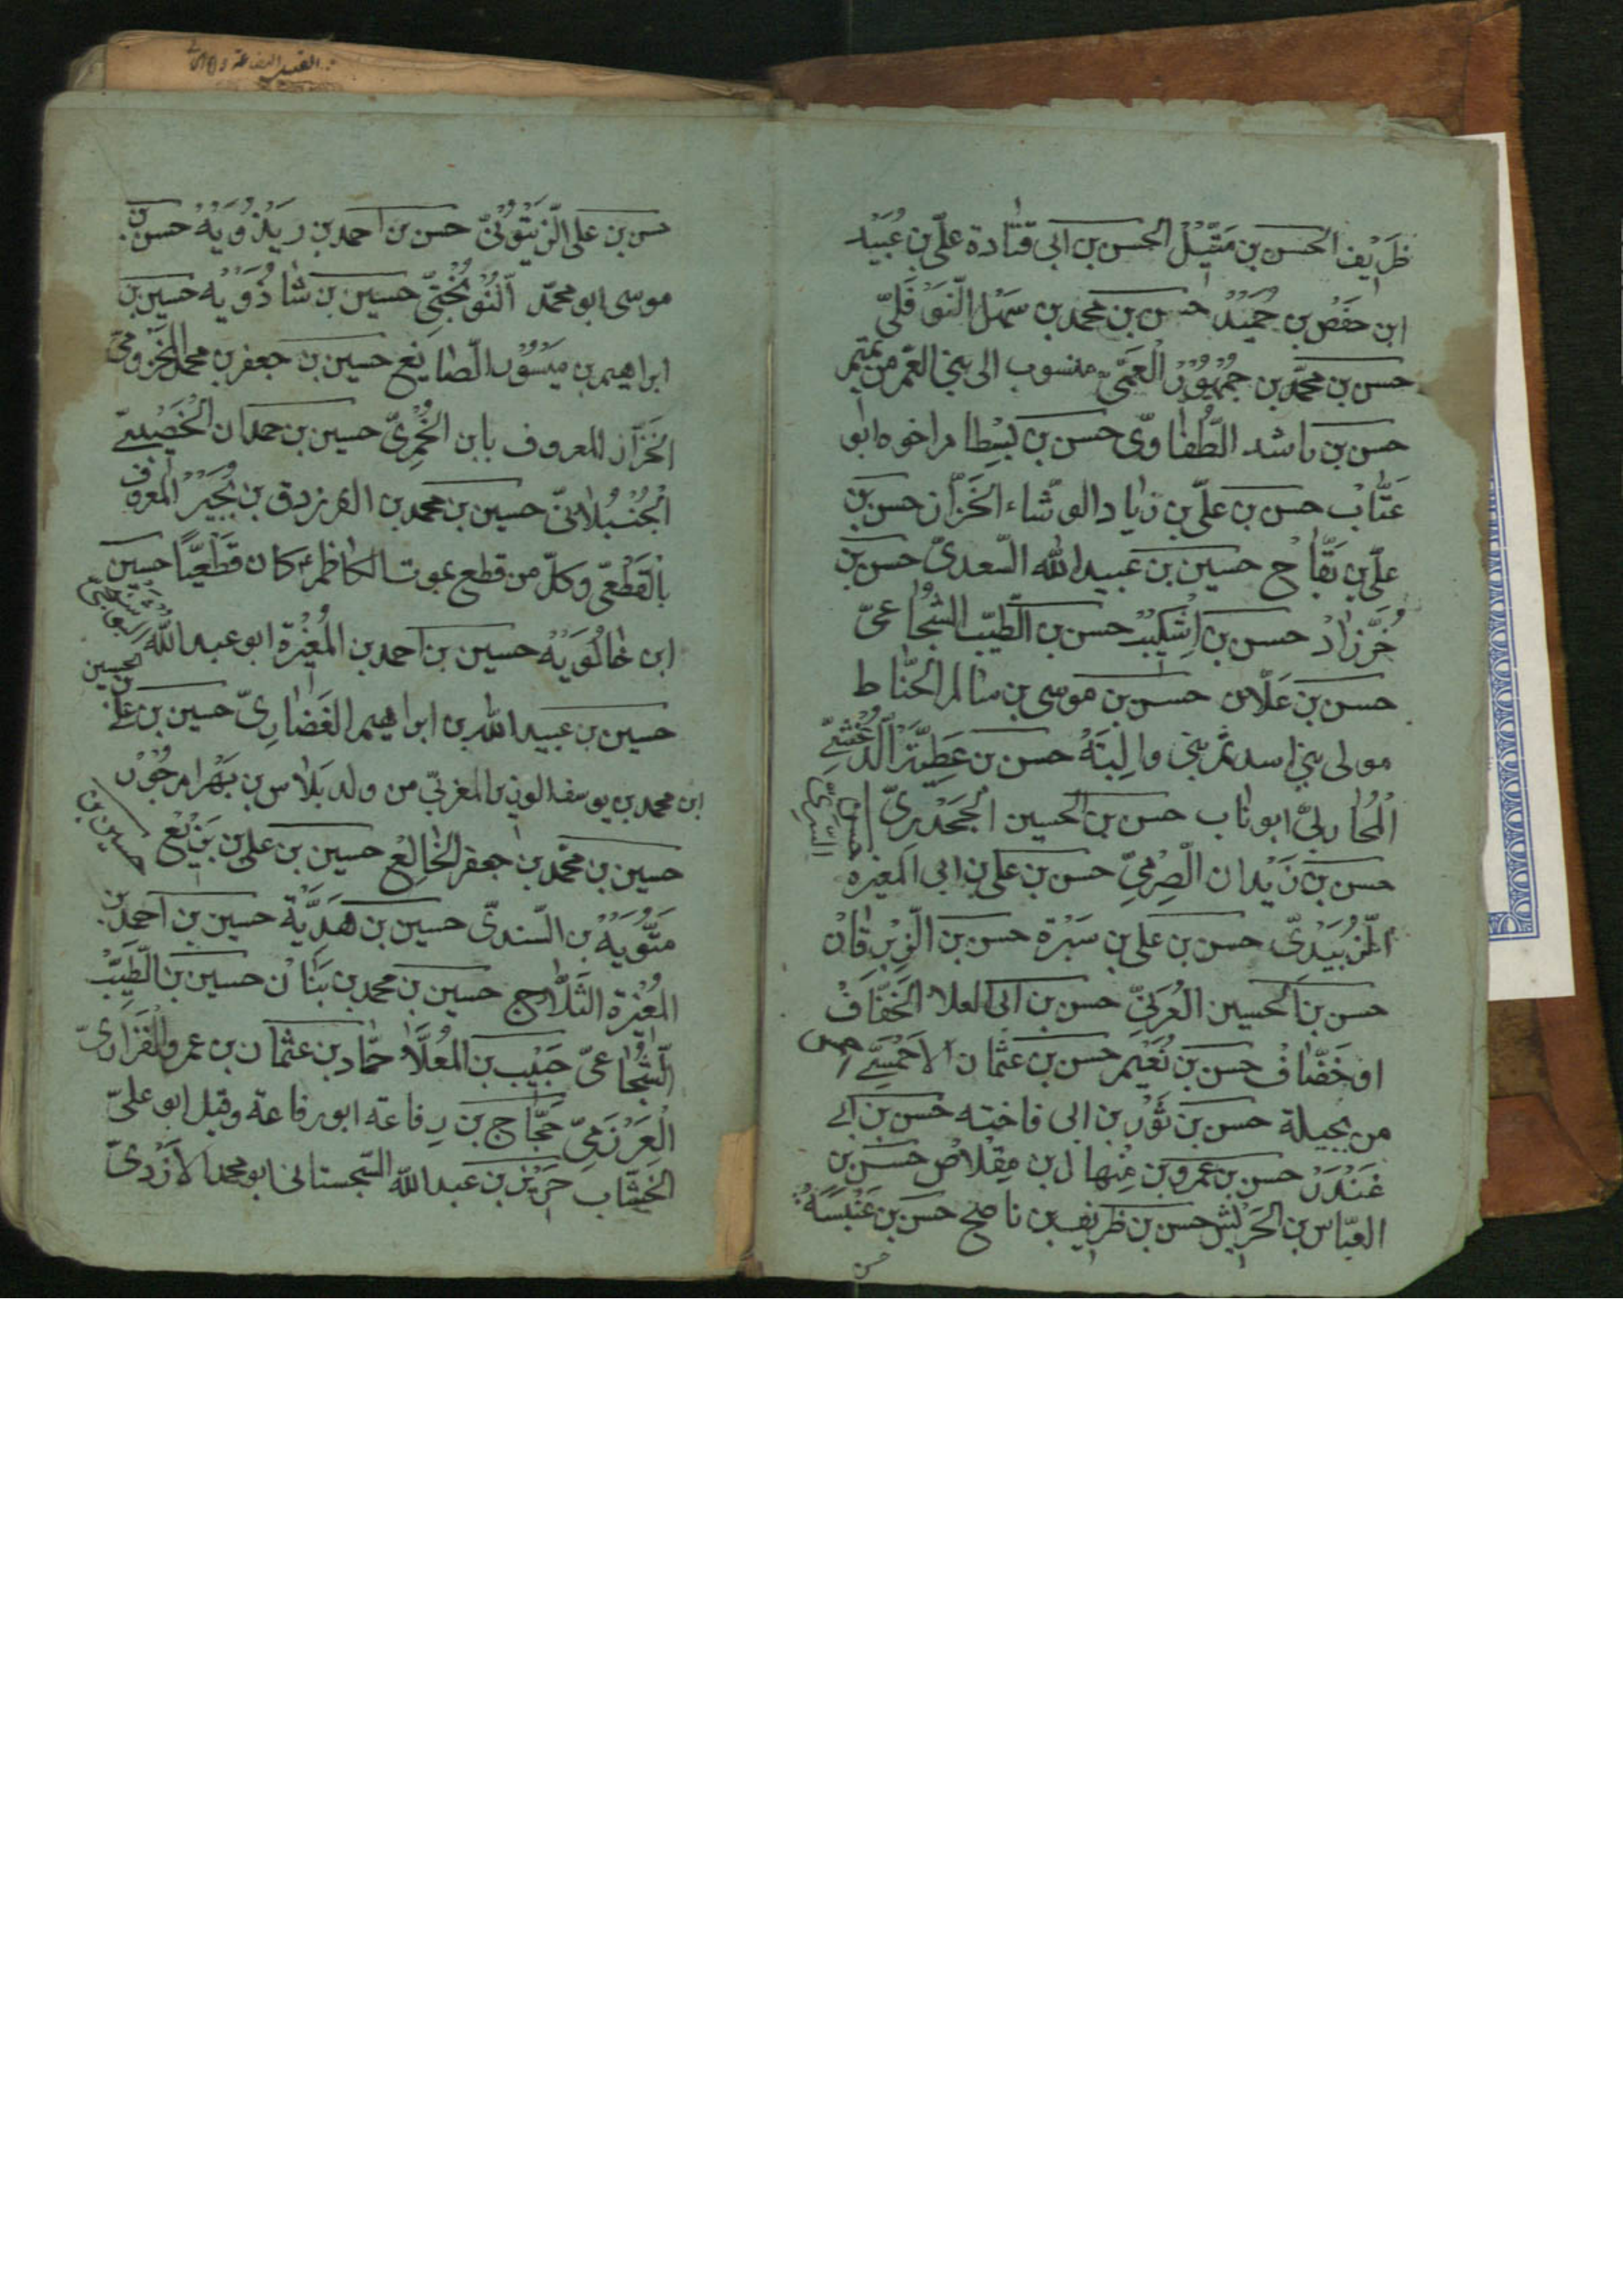 ظَرِيْف الحسن بن مَتِّيْلْ الحسن بن ابى قتادة علىّ بن عُبَيْد
ابن حفص بن حُمَيْد حسن بن محمد بن سهل النَّوْفَلىّ
حسن بن محمّد بن جُمْهُوْر الْعَمِّىّ منسوب الى بنى العَمّ من تميم
حسن بن راشد الطُّفَاوىّ حسن بن بسطام اخوه ابو
عَتَّابْ حسن بن علىّ بن زياد الوشّاء الخَزّاز حسن بن
علىّ بن بَقَّاح حسين بن عبيد الله السّعدىّ حسن بن
خُرَّزَادْ حسن بن اِشْكِيْبْ حسن بن الطّيّب الشُّجَاعىّ
حسن بن عَلّان حسن بن موسى بن سالم الحَنَّاط
مولى بنى اسد ثم بنى وَالِبَةَ حسن بن عَطِيَّة الدَّغْشِىّ
الْمُحَاربىّ ابو ناب حسن بن الحسين الجَحْدَرىّ
حسن بن السَّرِىّ
حسن بن زَيْدان الصِّرْمِىّ حسن بن على بن ابى المغيرة
الزُّبَيْدىّ حسن بن على بن سَبْرة حسن بن الزِّبْرِقانْ
حسن بن الحسين العُرَنىّ حسن بن ابى العلا الخَفَّافْ
او خَصَّافْ حسن بن نُعَيْم حسن بن عثمان الاَحْمَسِىّ
من بجيلة حسن بن ثَوْر بن ابى فاخته حسن بن ابى
غُنْدَرْ حسن بن عمرو بن مِنْهال بن مِقْلاصْ حسن بن
العبّاس بن الحَرِيْش حسن بن ظَرِيْف بن ناصح حسن بن عَنْبَسَةْ
حسن
حسن بن على الزَّيْتُوْنىّ حسن بن احمد بن رِيْذُوَيْهْ حسن بن
موسى ابو محمّد النُّوْبَخْتِىّ حسين بن شَاذُوَيْه حسين بن
ابراهيم بن مَيْسُوْر الصّايغ حسين بن جعفر بن محمد المَخْزومىّ
الخَزّاز المعروف بابن الخُمْرِىّ حسين بن حمدان الخَصِيْبىّ
الْجُنْبُلانىّ حسين بن محمد بن الفرزدق بن بُجَيْر المعروف
بالْقَطْعِىّ وكلّ من قطع بموت الكاظم ع كان قَطْعِيًّا حسين
ابن خَالُوَيْهْ حسين بن احمد بن المُغِيْرة ابو عبد الله البُوْشَنْجىّ
الحسين بن
حسين بن عبيد الله بن ابراهيم الغَضَايرىّ حسين بن على
ابن محمد بن يوسف الوزير المغربىّ من ولد بَلاس بن بَهْرام جُوْرْ
حسين بن محمّد بن جعفر الخَالِعْ حسين بن على بن بَزِيْع حسين بن
مَتُّوَيْهْ بن السّندىّ حسين بن هَدِيَّة حسين بن احمد بن
المُغِيْرة الثَلَّاج حسين بن محمد بن بنان حسين بن الطَّيِّبْ
الشُّجَاعىّ حَبِيْب بن المُعَلَّا حمّاد بن عثمان بن عمرو الْفَزَارىّ
الْعَرْزَمِىّ حَجَّاج بن رِفاعة ابو رفاعة وقيل ابو علىّ
الخشّاب حَرِيْز بن عبد الله السّجستانى ابو محمد الاَزْدىّ